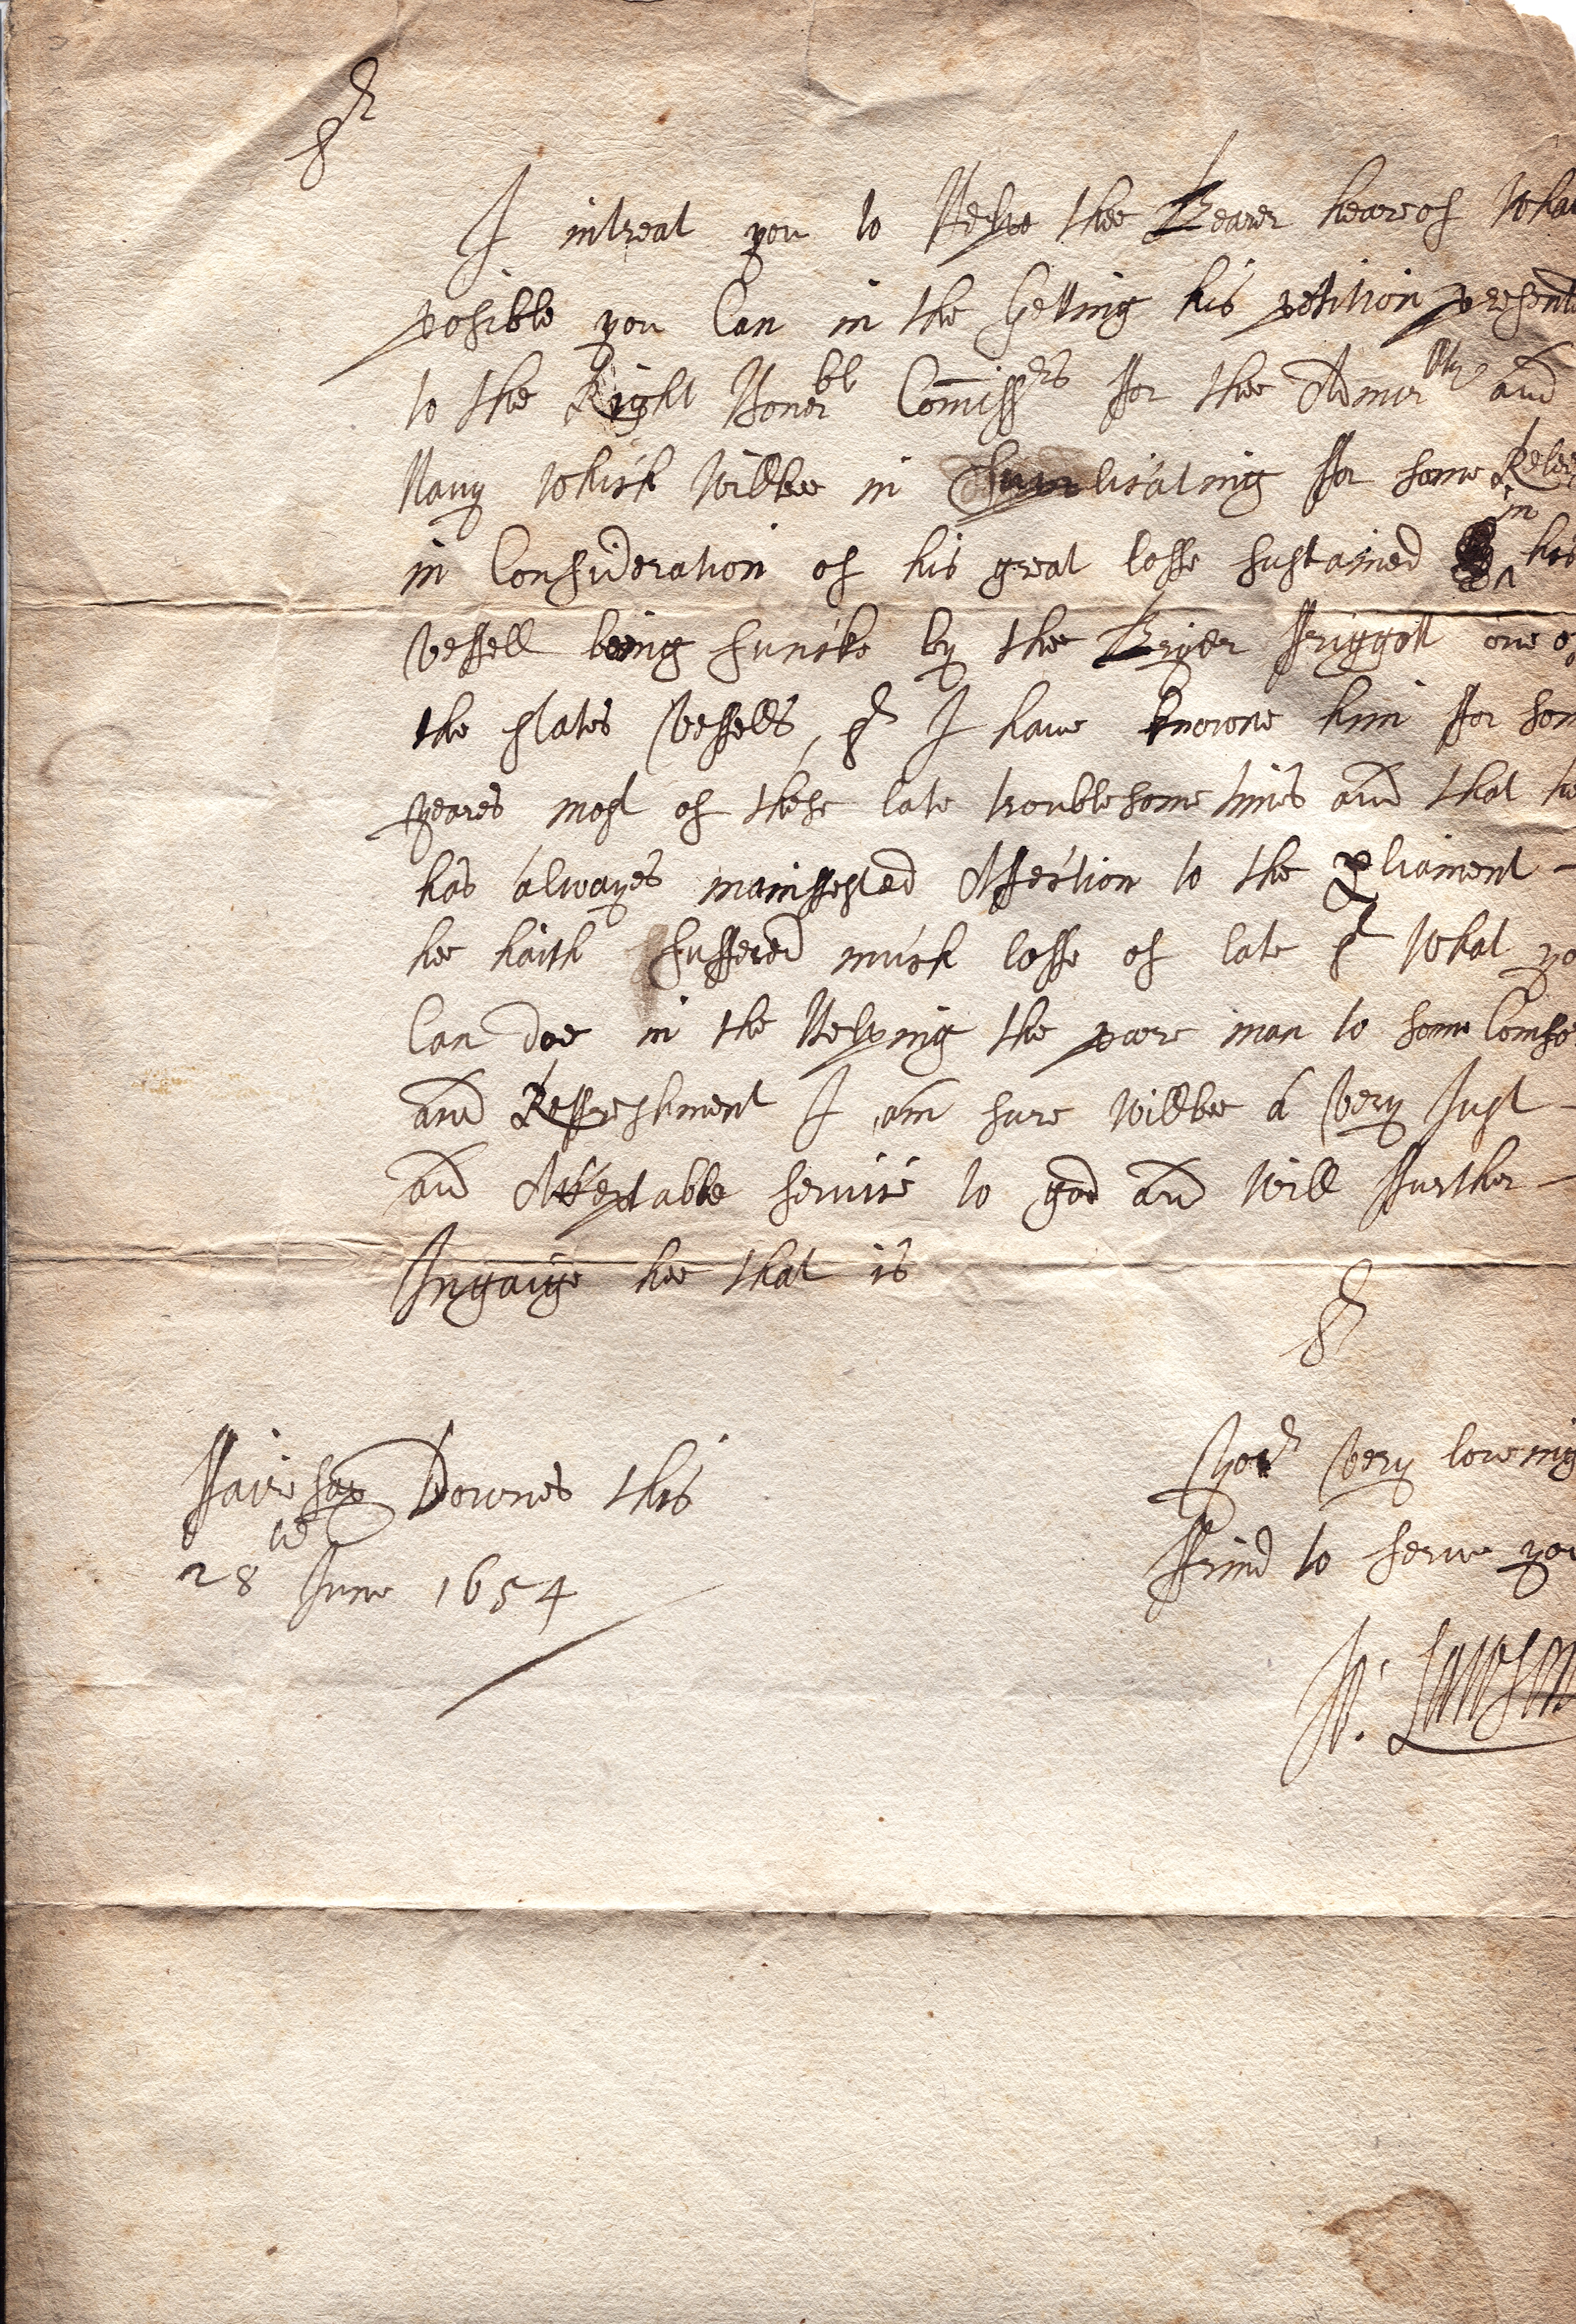 Sr
I intreat you to Helpe thee Bearer heareof what
posible you Can in the Getting his petition present
to the Right Honerbl Commissrs ffor thee Admirllty and
Navy which willbee in supplicating ffor some Relee
in Consideration of his great losse sustained in his
vessell being suncke by the Briger ffriggott one of
the states vessells, Sr I have knowne him ffor som
yeares most of these late troublesome times and that hee
has alwayes maniffested Affection to the pliament -
hee haith suffered much losse of late Sr what yo
Can doe in the Helping the poore man to some Comfo
and Reffreshment I am sure willbee a very Just -
and Acceptable service to god and will ffurther -
Ingaige hee that is
Sr
Yor very loveing
ffrind to serve you
Jo: Lawson
ffairefax Downes this
28th June 1654